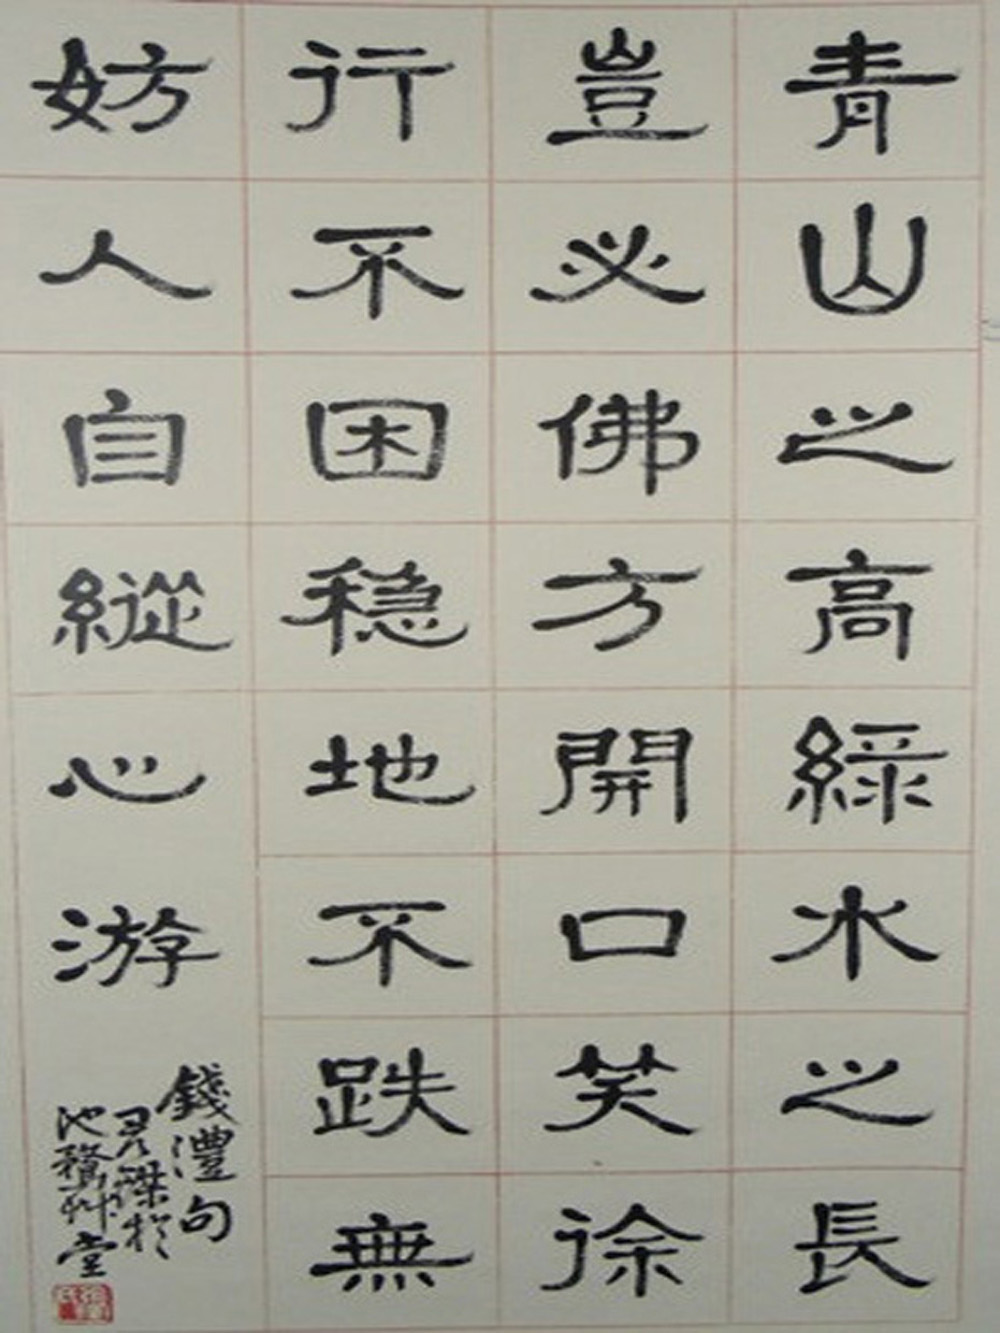 青山之高綠水之長
豈必佛方開口笑徐
行不困穩地不跌無
妨人自縱心游
錢灃句
君傑於
池鶩艸堂